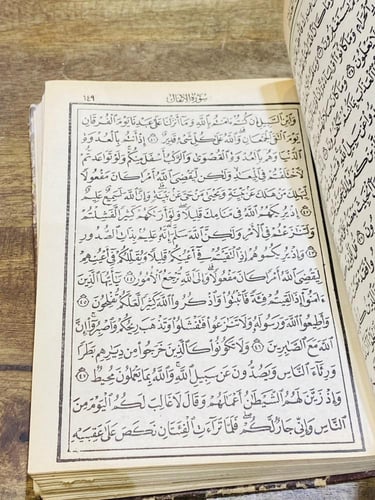 سُورَةُ الْأَنْفَالِ
١٤٩
وَٱبْنِ ٱلسَّبِيلِ إِن كُنتُمْ ءَامَنتُم بِٱللَّهِ وَمَآ أَنزَلْنَا عَلَىٰ عَبْدِنَا يَوْمَ ٱلْفُرْقَانِ
يَوْمَ ٱلْتَقَى ٱلْجَمْعَانِ وَٱللَّهُ عَلَىٰ كُلِّ شَىْءٍ قَدِيرٌ ٤١ إِذْ أَنتُم بِٱلْعُدْوَةِ
ٱلدُّنْيَا وَهُم بِٱلْعُدْوَةِ ٱلْقُصْوَىٰ وَٱلرَّكْبُ أَسْفَلَ مِنكُمْ وَلَوْ تَوَاعَدتُّمْ
لَٱخْتَلَفْتُمْ فِى ٱلْمِيعَٰدِ وَلَٰكِن لِّيَقْضِىَ ٱللَّهُ أَمْرًا كَانَ مَفْعُولًا
لِّيَهْلِكَ مَنْ هَلَكَ عَنۢ بَيِّنَةٍ وَيَحْيَىٰ مَنْ حَىَّ عَنۢ بَيِّنَةٍ وَإِنَّ ٱللَّهَ لَسَمِيعٌ عَلِيمٌ
٤٢ إِذْ يُرِيكَهُمُ ٱللَّهُ فِى مَنَامِكَ قَلِيلًا وَلَوْ أَرَىٰكَهُمْ كَثِيرًا لَّفَشِلْتُمْ
وَلَتَنَٰزَعْتُمْ فِى ٱلْأَمْرِ وَلَٰكِنَّ ٱللَّهَ سَلَّمَ إِنَّهُ عَلِيمٌۢ بِذَاتِ ٱلصُّدُورِ
٤٣ وَإِذْ يُرِيكُمُوهُمْ إِذِ ٱلْتَقَيْتُمْ فِىٓ أَعْيُنِكُمْ قَلِيلًا وَيُقَلِّلُكُمْ فِىٓ أَعْيُنِهِمْ
لِيَقْضِىَ ٱللَّهُ أَمْرًا كَانَ مَفْعُولًا وَإِلَى ٱللَّهِ تُرْجَعُ ٱلْأُمُورُ ٤٤ يَٰٓأَيُّهَا ٱلَّذِينَ
ءَامَنُوٓا۟ إِذَا لَقِيتُمْ فِئَةً فَٱثْبُتُوا۟ وَٱذْكُرُوا۟ ٱللَّهَ كَثِيرًا لَّعَلَّكُمْ تُفْلِحُونَ ٤٥
وَأَطِيعُوا۟ ٱللَّهَ وَرَسُولَهُ وَلَا تَنَٰزَعُوا۟ فَتَفْشَلُوا۟ وَتَذْهَبَ رِيحُكُمْ وَٱصْبِرُوٓا۟ إِنَّ
ٱللَّهَ مَعَ ٱلصَّٰبِرِينَ ٤٦ وَلَا تَكُونُوا۟ كَٱلَّذِينَ خَرَجُوا۟ مِن دِيَٰرِهِم بَطَرًا
وَرِئَآءَ ٱلنَّاسِ وَيَصُدُّونَ عَن سَبِيلِ ٱللَّهِ وَٱللَّهُ بِمَا يَعْمَلُونَ مُحِيطٌ ٤٧
وَإِذْ زَيَّنَ لَهُمُ ٱلشَّيْطَٰنُ أَعْمَٰلَهُمْ وَقَالَ لَا غَالِبَ لَكُمُ ٱلْيَوْمَ مِنَ
ٱلنَّاسِ وَإِنِّى جَارٌ لَّكُمْ فَلَمَّا تَرَآءَتِ ٱلْفِئَتَانِ نَكَصَ عَلَىٰ عَقِبَيْهِ